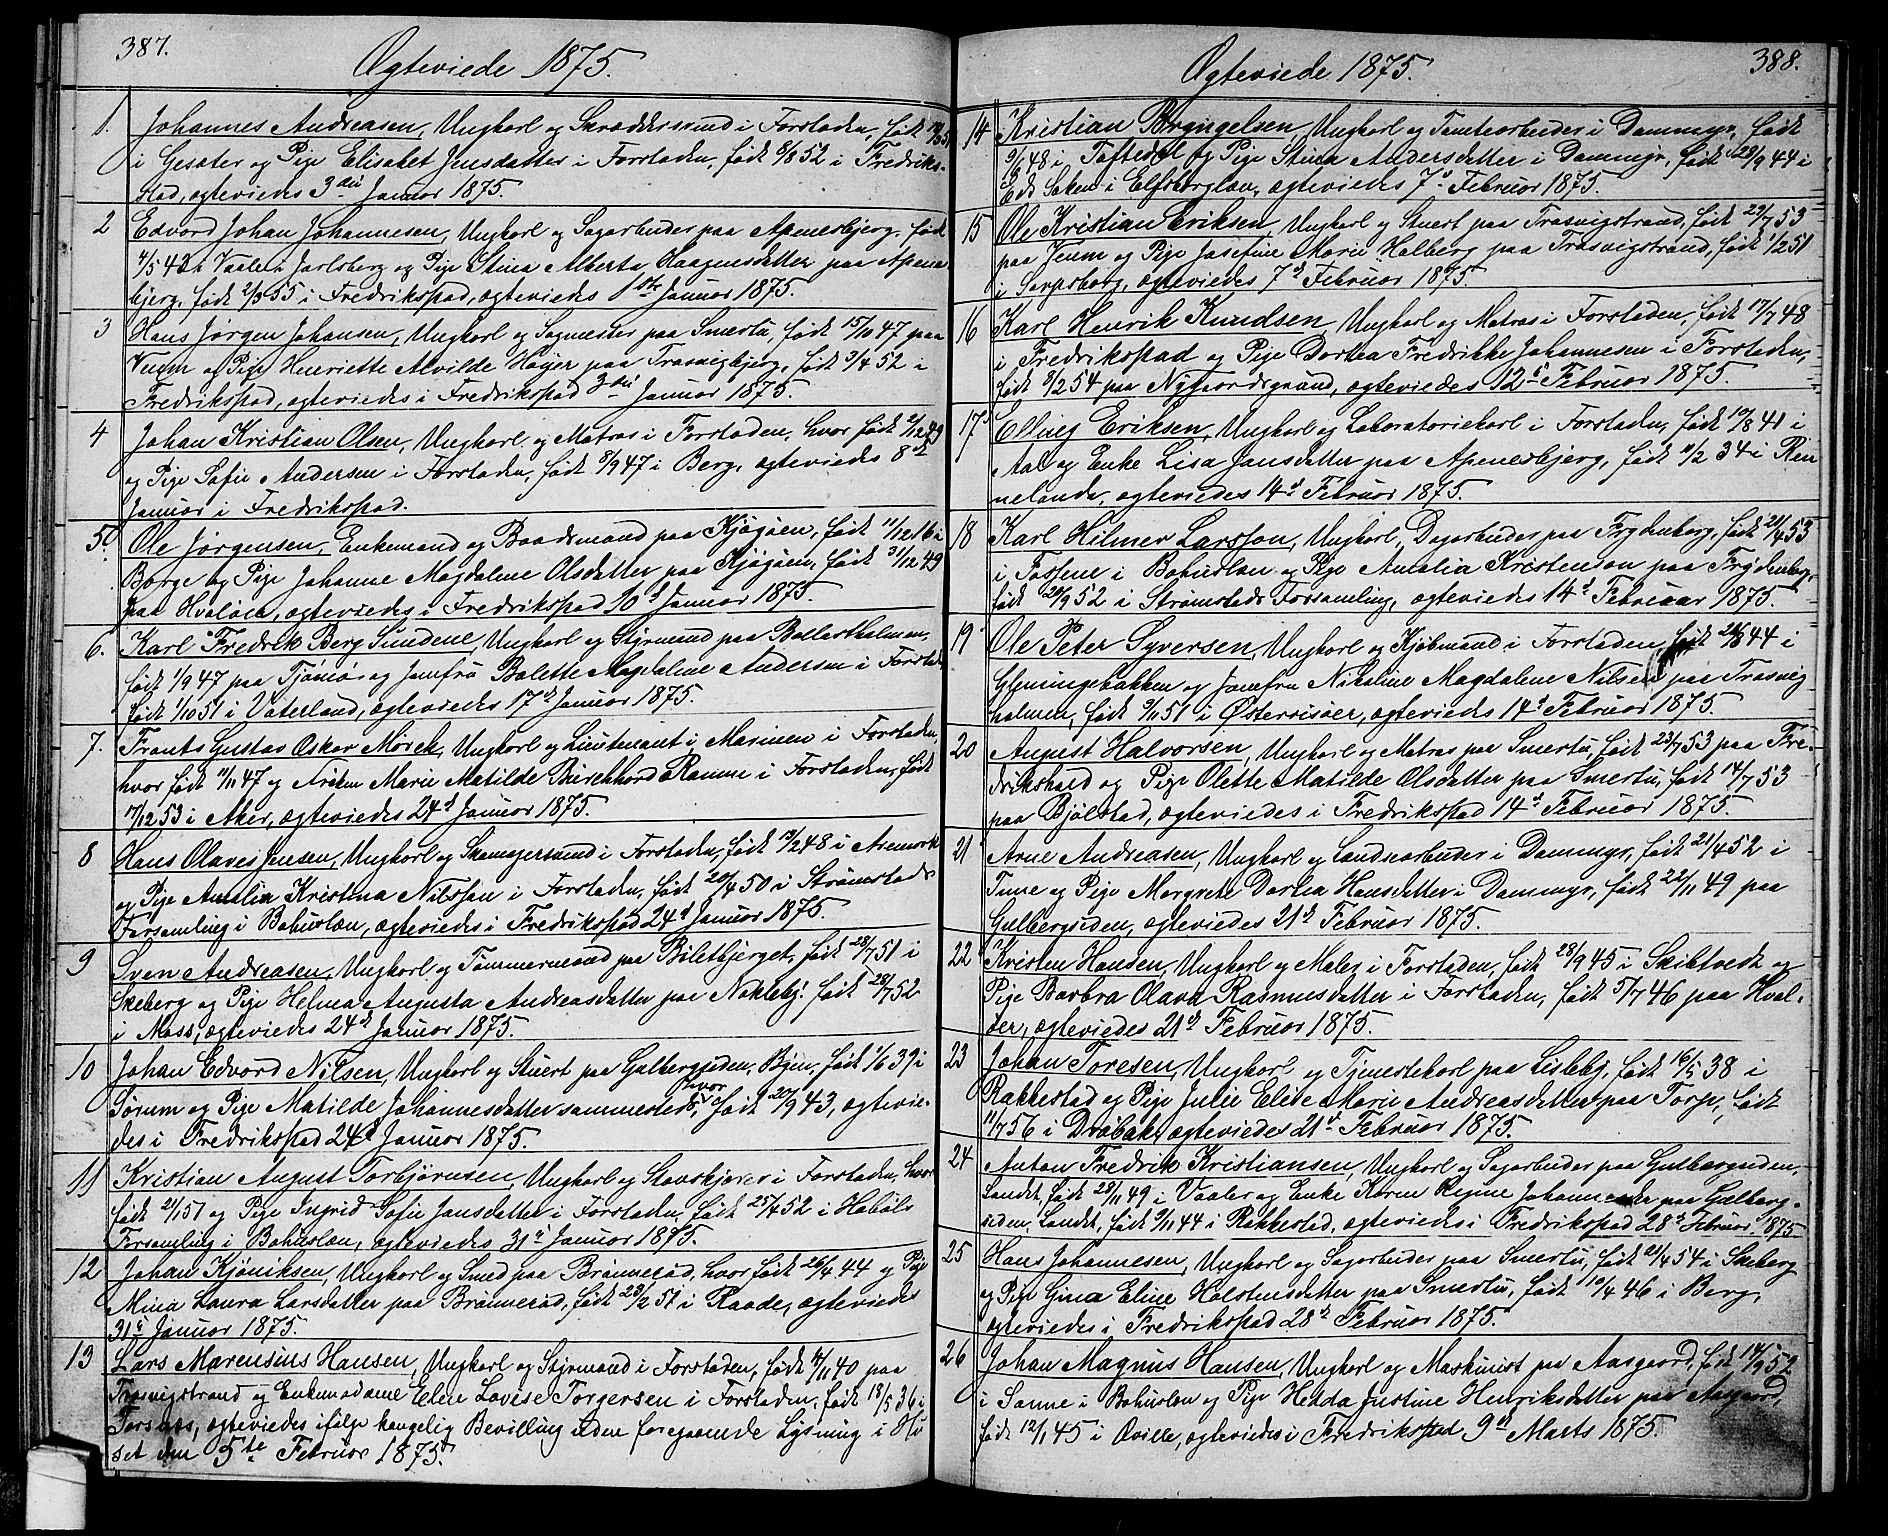 387.
Ægteviede 1875.
1. Johannes Andreasen, Ungkarl og Skræddersvend i Forstaden, født
i Gesæter og Pige Elisabet Jensdatter i Forstaden, født 8/8 52 i Fredriks-
stad, ægteviedes 3die Januar 1875.
2 Edvard Johan Johannesen, Ungkarl og Sagarbeider paa Apenesbjerg, født
4/5 42 i Vaale i Jarlsberg og Pige Stina Alberta Haagensdatter paa Apenes
bjerg, født 2/3 55 i Fredrikstad, ægteviedes 1ste Januar 1875.
3 Hans Jørgen Johansen, Ungkarl og Sagmester paa Smertu, født 15/11 47 paa
Veum og Pige Henriette Alvilde Høyer paa Trasvigbjerg, født 3/4 52 i
Fredrikstad, ægteviedes i Fredrikstad 3die Januar 1875.
4 Johan Kristian Olsen, Ungkarl og Matros i Forstaden, hvor født 2/12 49
og Pige Sofie Andersen i Forstaden, født 8/9 47 i Berg, ægteviedes 8de
Januar i Fredrikstad.
5. Ole Jørgensen, Enkemand og Baadsmand paa Kjøgøen, født 11/12 16 i
Borge og Pige Johanne Magdalene Olsdatter paa Kjøgøen, født 31/12 49
paa Hvaløer, ægteviedes i Fredrikstad 10d Januar 1875.
6. Karl Fredrik Berg Sundene, Ungkarl og Styrmand paa Bollertholmen,
født 1/9 47 paa Tjømø og Jomfru Bolette Magdalene Andersen i Forstad.
født 1/10 51 i Vaterland, ægteviedes 17d Januar 1875.
7. Frants Gustav Oskar Mørch, Ungkarl og Lieutenant i Marinen i Forstaden,
hvor født 11/11 47 og Frøken Marie Matilde Ramm i Forstaden, født
17/12 53 i Aker, ægteviedes 24d Januar 1875.
8 Hans Olaves Jensen, Ungkarl og Skomagersvend i Forstaden, født 13/2 48 i Aremark
og Pige Amalia Kristina Nilsson i Forstaden, født 20/4 50 i Strømstads
Forsamling i Bohuslæn, ægteviedes i Fredrikstad 24d Januar 1875.
9 Sven Andreasen, Ungkarl og Tømmermand paa Biletbjerget, født 28/7 51 i
Skeberg og Pige Helma Augusta Andreasdatter paa Naklebj. født 28/7 52
i Moss, ægteviedes 24d Januar 1875.
10 Johan Edvard Nilsen, Ungkarl og Stuert paa Gulbergsiden, Byen, født 1/6 39 i
Sørum og Pige Matilde Johannesdatter sammesteds, hvor født 20/9 43, ægtevie-
des i Fredrikstad 24d Januar 1875.
11 Kristian August Torbjørnsen, Ungkarl og Stenskjærer i Forstaden, hvor
født 21/1 51 og Pige Ingrid Sofie Jansdatter i Forstaden, født 25/4 52 i Habøls
Forsamling i Bohuslæn, ægteviedes 31d Januar 1875.
12 Johan Kjøniksen, Ungkarl og Smed paa Brønnerød, hvor født 26/4 44 og Pige
Mina Laura Larsdatter paa Brønnerød, født 23/2 51 i Raade, ægteviedes
31d Januar 1875.
13 Lars Marensius Hansen, Ungkarl og Styrmand i Forstaden, født 4/11 40 paa
Trasvigstrand og Enkemadame Elen Lovise Torgersen i Forstaden, født 18/5 36 i
Torsnæs, ægteviedes ifølge kongelig Bevilling uden foregaaende Lysning i Hu
set den 5te Februar 1875.
388.
Ægteviede 1875.
14 Kristian Bryngelsen, Ungkarl og Tomtearbeider i Dammyr, født
9/1 48 i Toftedal og Pige Stina Andersdatter i Dammyr, født 28/9 44 i
Eds Soken i Elfsborglæn, ægteviedes 7d Februar 1875.
15 Ole Kristian Eriksen, Ungkarl og Stuert paa Trasvigstrand, født 29/7 53
paa Veum og Pige Josefine Marie Halberg paa Trasvigstrand, født 1/2 51
i Sarpsborg, ægteviedes 7d Februar 1875.
16 Karl Henrik Knudsen, Ungkarl og Matros i Forstaden, født 17/7 48
i Fredrikstad og Pige Dortea Fredrikke Johannesen i Forstaden,
født 8/2 54 paa Nygaardsgrund, ægteviedes 12d Februar 1875.
17 Elling Eriksen, Ungkarl og Laboratoriekarl i Forstaden, født 10/8 41 i
Aal og Enke Lisa Jansdatter paa Apenesbjerg, født 11/2 34 i Rin
nelanda, ægteviedes 14d Februar 1875.
18 Karl Hilmer Larsson, Ungkarl, Dagarbeider paa Frydenberg, født 21/4 53
i Tossene i Bohuslæn og Pige Amalia Kristenson paa Frydenberg,
født 20/9 52 i Strømstads Forsamling, ægteviedes 14d Februar 1875.
19 Ole Peter Syversen, Ungkarl og Kjøbmand i Forstaden, født 26/8 44 i
Glemingebakken og Jomfru Nikoline Magdalene Nilsen paa Trasvig
holmen, født 9/11 51 i Østerrisøer, ægteviedes 14d Februar 1875.
20 August Halvorsen, Ungkarl og Matros paa Smertu, født 23/7 53 paa Fre-
drikshald og Pige Olette Matilde Olsdatter paa Smertu, født 14/7 53
paa Bjølstad, ægteviedes i Fredrikstad 14d Februar 1875.
21 Arne Andreasen, Ungkarl og Landsearbeider i Dammyr, født 21/4 52 i
Tune og Pige Margrete Dortea Hansdatter i Dammyr, født 22/11 49 paa
Gulbergsiden, ægteviedes 21d Februar 1875.
22 Kristen Hansen, Ungkarl og Maler i Forstaden, født 28/9 45 i Skibtvedt og
Pige Barbra Olava Rasmusdatter i Forstaden, født 5/7 46 paa Hval-
øer, ægteviedes 21d Februar 1875.
23 Johan Toresen, Ungkarl og Tjenestekarl paa Lisleby, født 16/5 38 i
Rakkestad og Pige Julie Elise Marie Andreasdatter paa Torp, født
11/7 56 i Drøbak, ægteviedes 21d Februar 1875.
24 Anton Fredrik Kristiansen, Ungkarl og Sagarbeider paa Gulbergsiden,
Landet, født 28/11 49 i Vaaler og Enke Karen Regine paa Gulberg-
siden, Landet, født 9/11 44 i Rakkestad, ægteviedes i Fredrikstad 28d Februar 1875
25 Hans Johannesen, Ungkarl og Sagarbeider paa Smertu, født 21/4 54 i Skeberg
og Pige Gina Eline Holstensdatter paa Smertu, født 10/4 46 i Berg,
ægteviedes i Fredrikstad 28d Februar 1875.
26 Johan Magnus Hansen, Ungkarl og Maskinist paa Aasgaard, født 14/9 52
i Sanne i Bohuslen og Pige Hedda Justine Henriksdatter paa Aasgaard,
født 12/1 45 i Qville, ægteviedes i Fredrikstad 9de Marts 1875.